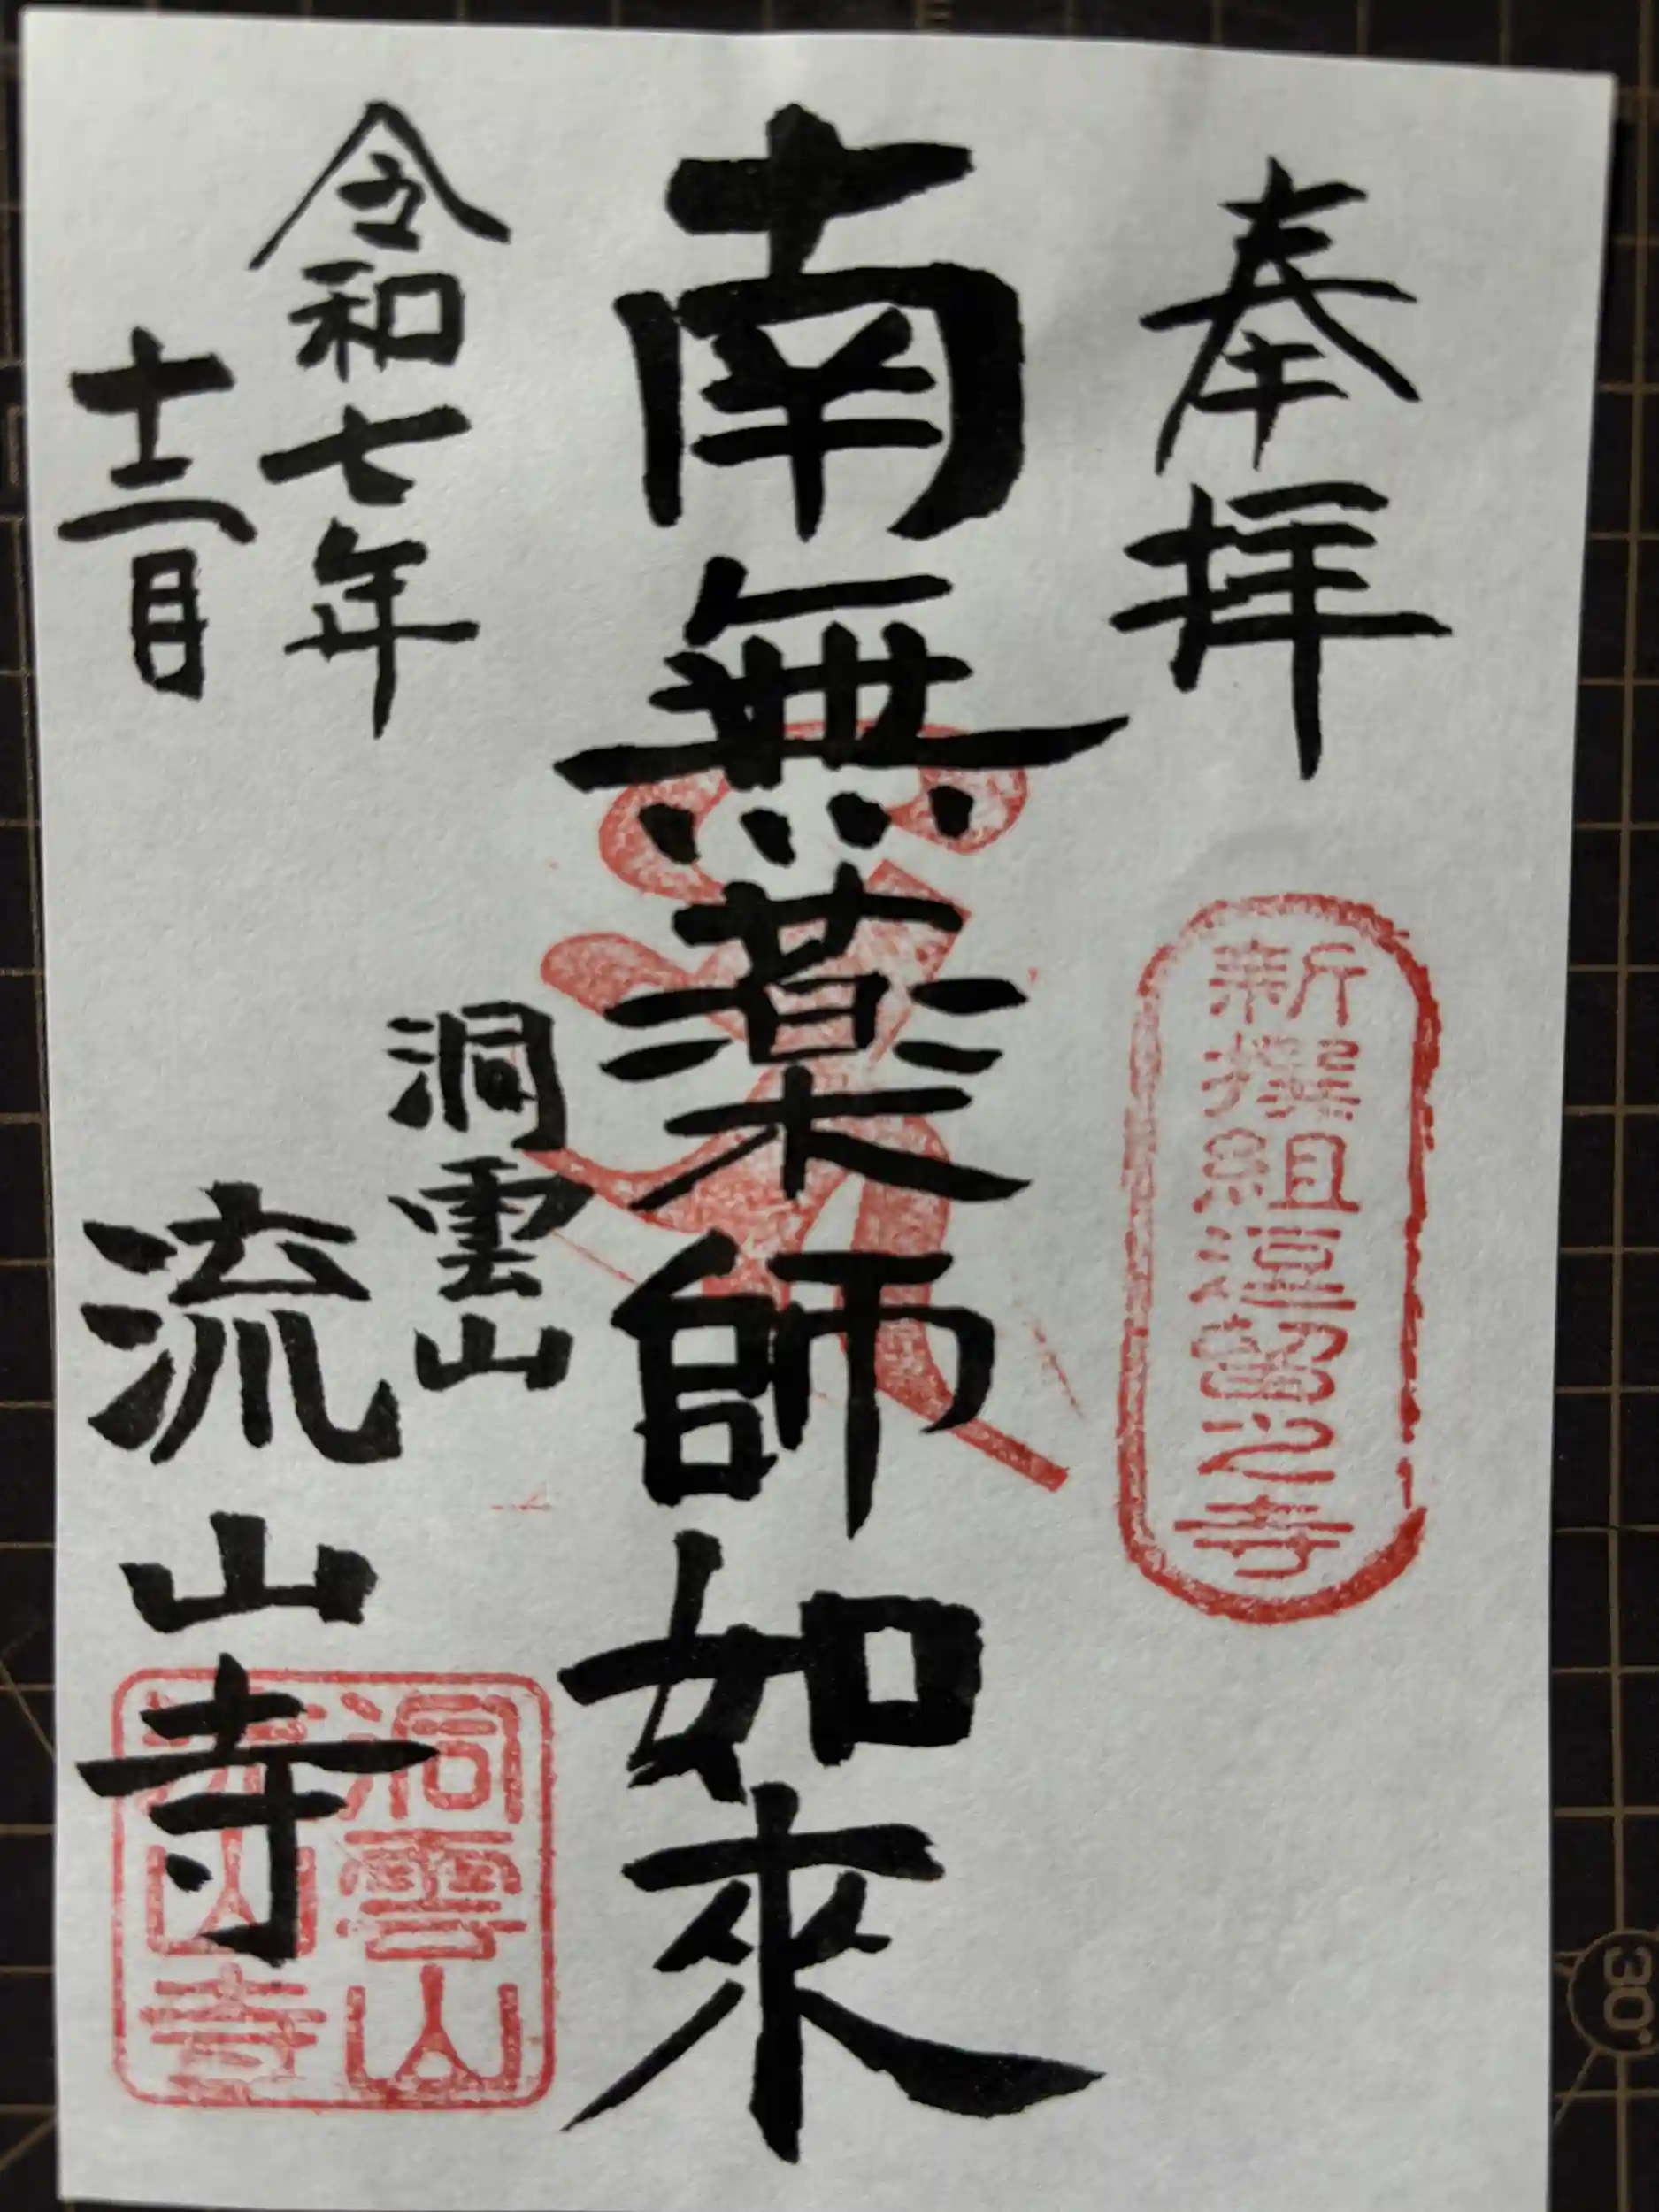 奉拝
新撰組逗留之寺
南無薬師如來
洞雲山
流山寺
令和七年
十二月
洞雲山
流山寺
30°